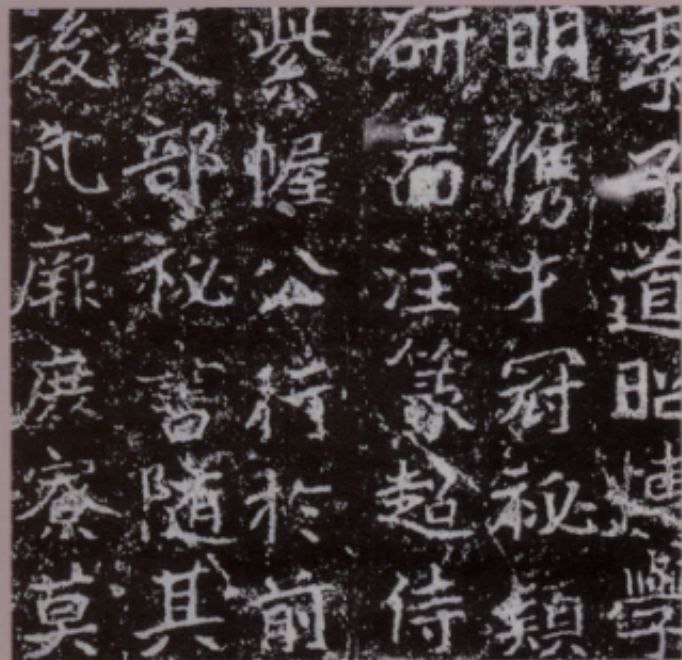 季子道昭博學
明儁才冠祕穎
研啚注篆超侍
紫幄公行於前
吏部祕書隨其
後凡厥庶寮莫